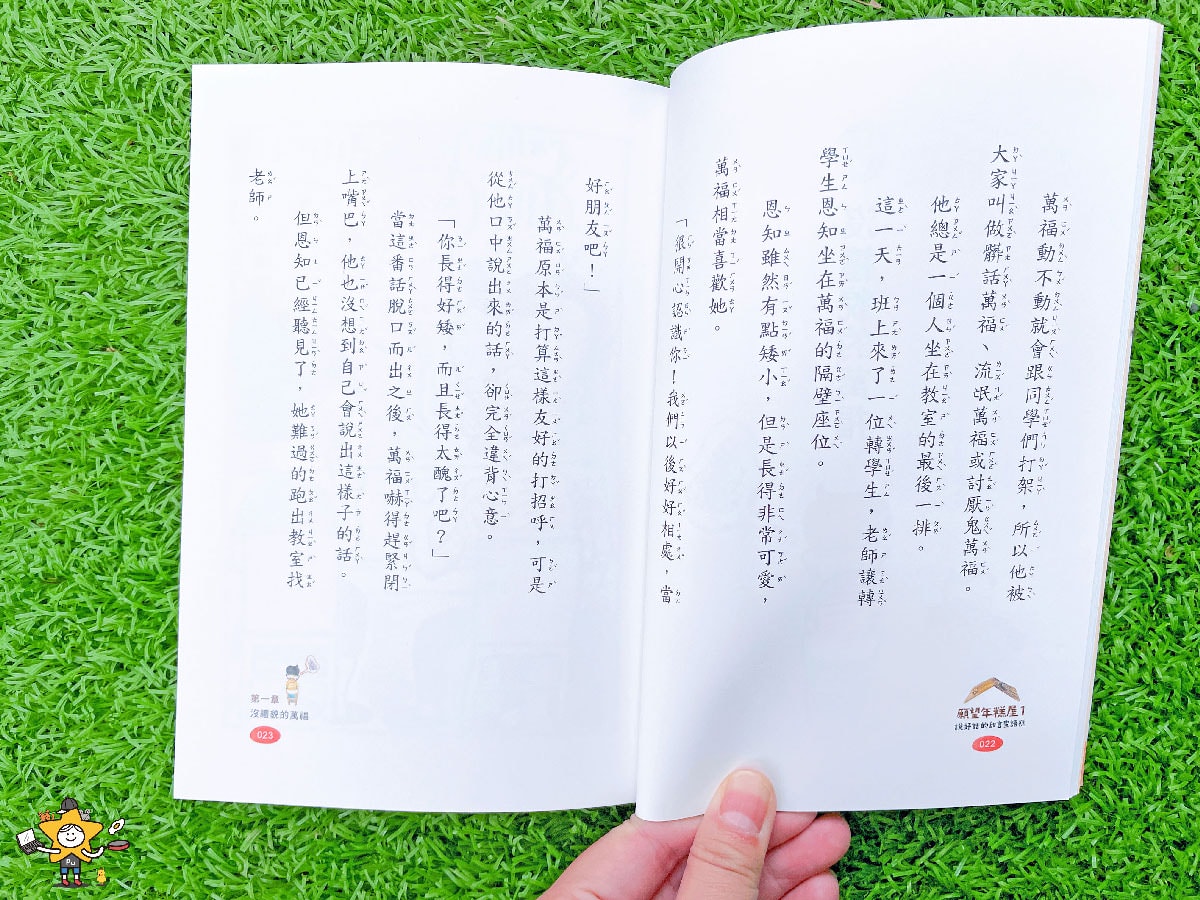 萬福動不動就會跟同學們打架，所以他被
大家叫做髒話萬福、流氓萬福或討厭鬼萬福。
他總是一個人坐在教室的最後一排。
這一天，班上來了一位轉學生，老師讓轉
學生恩知坐在萬福的隔壁座位。
恩知雖然有點矮小，但是長得非常可愛，
萬福相當喜歡她。
「很開心認識你！我們以後好好相處，當
願望年糕屋1
022
好朋友吧！」
萬福原本是打算這樣友好的打招呼，可是
從他口中說出來的話，卻完全違背心意。
「你長得好矮，而且長得太醜了吧？」
當這番話脫口而出之後，萬福嚇得趕緊閉
上嘴巴，他也沒想到自己會說出這樣子的話。
但恩知已經聽見了，她難過的跑出教室找
老師。
第一章
沒禮貌的萬福
023